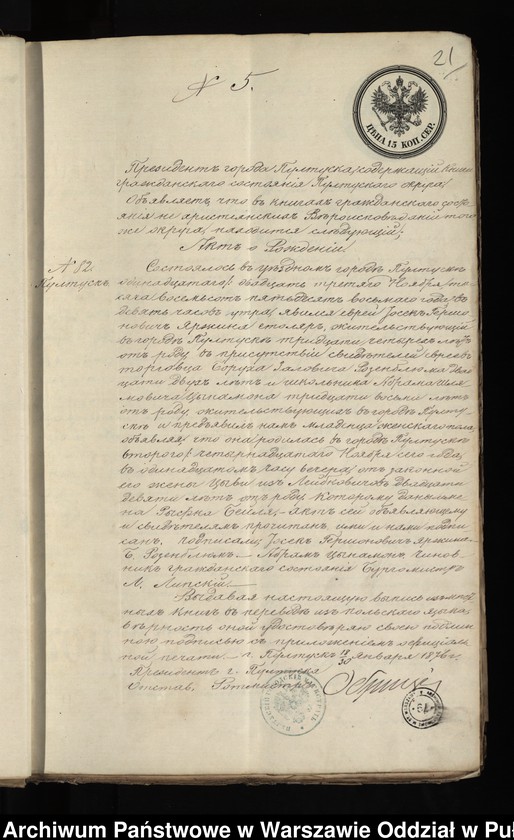 21
N 5.
ЦѢНА 15 КОП. СЕР.
Президентъ города Пултуска, содержащій книги
гражданскаго состоянія Пултускаго округа,
Объявляетъ что въ книгахъ гражданскаго состо-
янія не христіанскихъ Вѣроисповѣданій того
же округа находится слѣдующій:
Актъ о Рожденіи
N 82.
Пултускъ
Состоялось въ уѣздномъ городѣ Пултускѣ
одинадцатаго/двадцать третяго Ноября ты-
сяча восемьсотъ пятьдесятъ восьмаго года, въ
девять часовъ утра, явился еврей Іосекъ
столяръ, жительствующій
въ городѣ Пултускѣ тридцати четырехъ лѣтъ
отъ роду въ присутствіи свидѣтелей евреевъ
торговца Розенблюма два-
цати двухъ лѣтъ и школьника Абрама
Цынамона тридцати восьми лѣтъ
отъ роду, жительствующихъ въ городѣ Пулту-
скѣ и предъявилъ намъ младенца женскаго пола
объявляя, что она родилась въ городѣ Пултускѣ
втораго/четырнадцатаго Ноября сего года,
въ одинадцатомъ часу вечера, отъ законной
его жены Цывы изъ Лейбовичовъ двадцати
девяти лѣтъ отъ роду, которому даны име-
на Бейля, актъ сей объявляющему
и свидѣтелямъ прочитанъ ими и нами подпи-
санъ, подписали: Іосекъ
Б. Розенблюмъ. Абрамъ Цынамонъ, чинов-
никъ гражданскаго состоянія Бургомистръ
Л. Липскій.
Выдавая настоящую выпись изъ
ныхъ книгъ въ переводѣ изъ польскаго языка,
въ вѣрности оной удостовѣряю своею подпи-
ною подписью съ приложеніемъ оффиціаль-
ной печати. г. Пултускъ 18/30 Января 1876 г.
Президентъ г. Пултуска
Отстав. Ротмистръ
Archiwum Państwowe w Warszawie Oddział w Pu